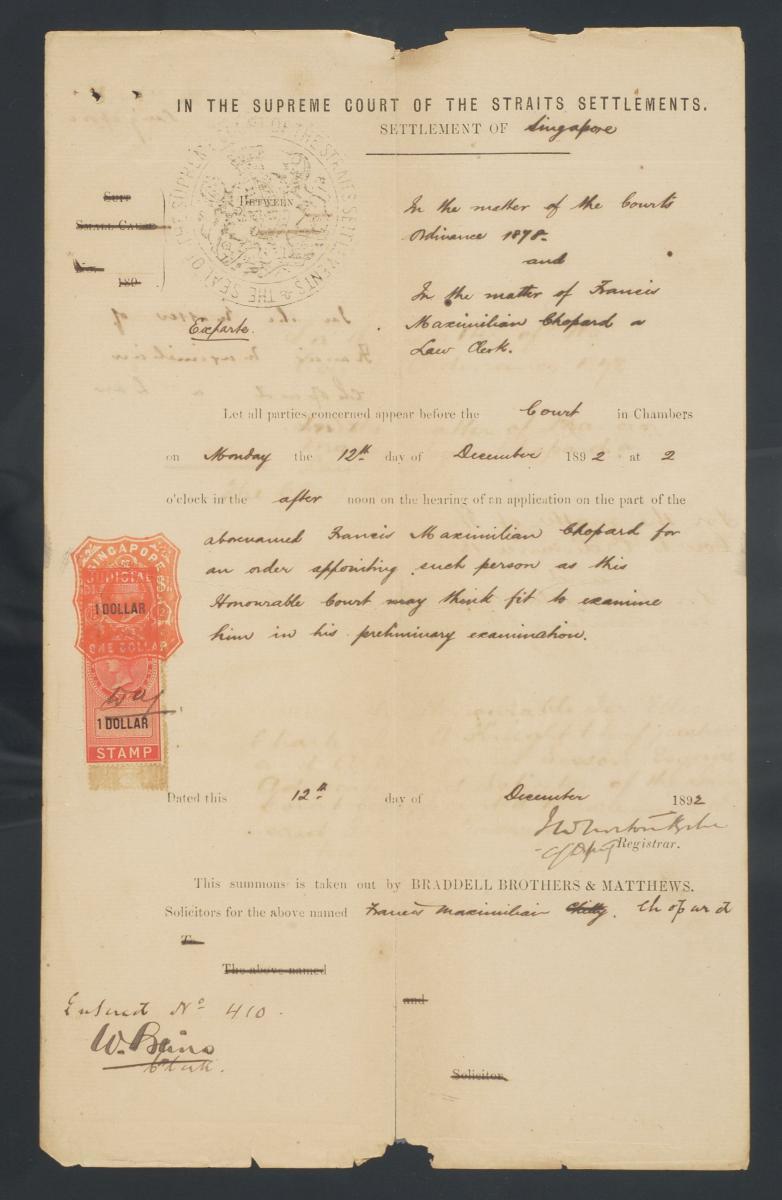 IN THE SUPREME COURT OF THE STRAITS SETTLEMENTS.
SETTLEMENT OF Singapore
THE SEAL OF THE SUPREME COURT OF THE STRAITS SETTLEMENTS
Suit
Small Cause
No.
189
Between
In the matter of the Courts
Ordinance 1878-
and
In the matter of Francis
Maximilian Chopard a
Law Clerk.
Exparte.
Let all parties concerned appear before the Court in Chambers
on Monday the 12th day of December 1892 at 2
o'clock in the after noon on the hearing of an application on the part of the
abovenamed Francis Maximilian Chopard for
an order appointing such person as this
Honourable Court may think fit to examine
him in his preliminary examination.
SINGAPORE
JUDICIAL
1 DOLLAR
ONE DOLLAR
1 DOLLAR
STAMP
Dated this 12th day of December 1892
Registrar.
This summons is taken out by BRADDELL BROTHERS & MATTHEWS.
Solicitors for the above named Francis Maximilian Chitty. Chopard
To
The above-named
and
Solicitor
Entered No 410.
Clerk.